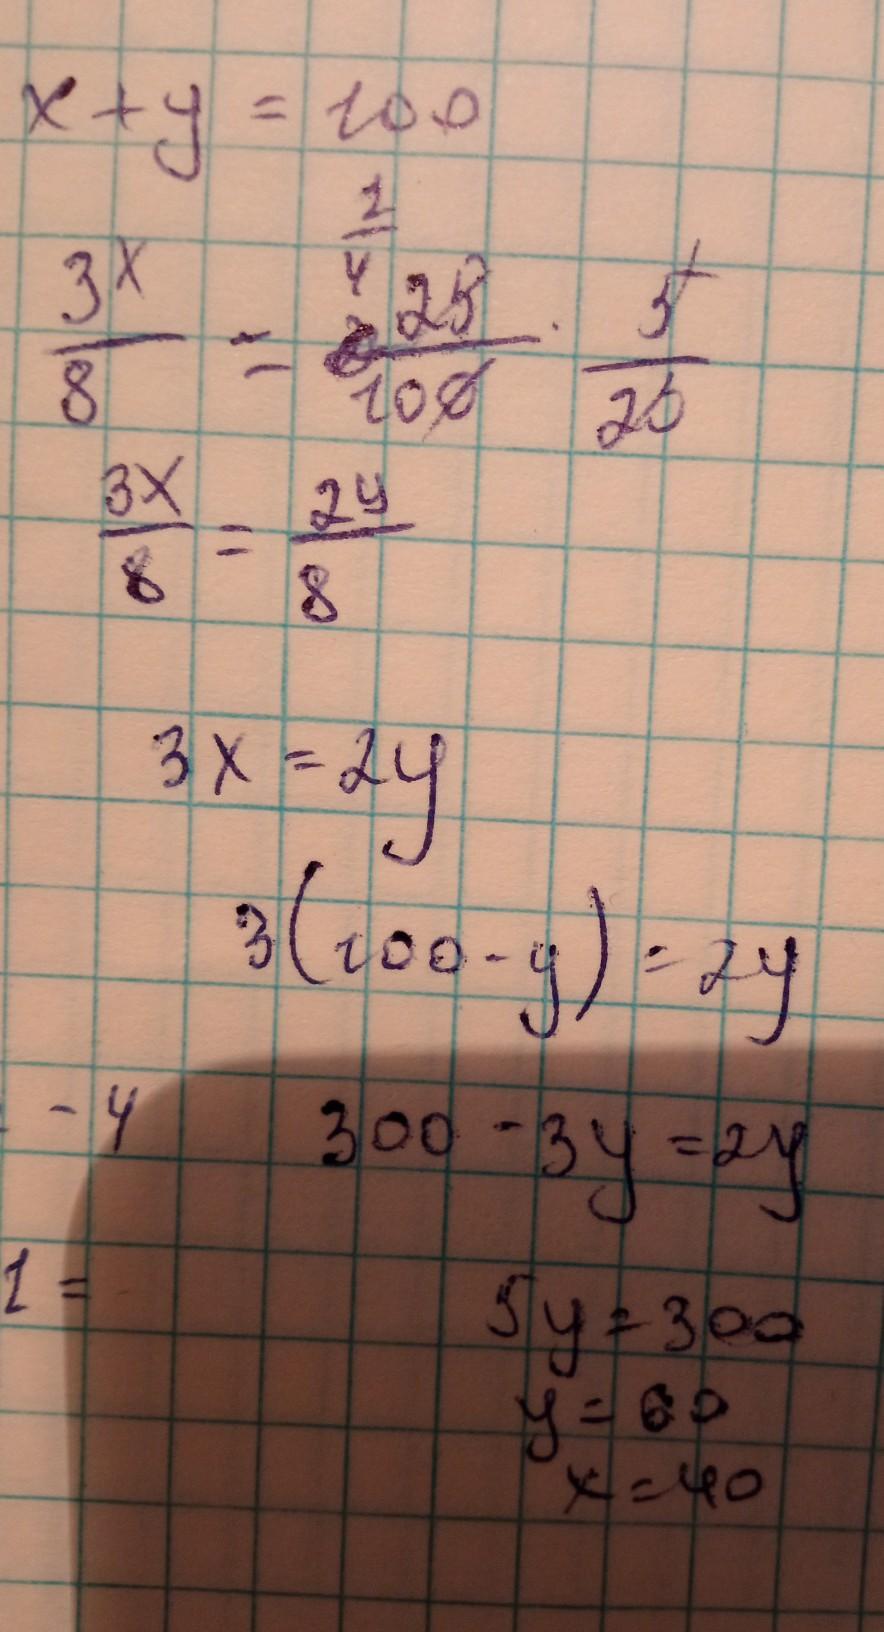 x + y = 100
1/4
3x/8 = 25/100 · 5/20
3x/8 = 2y/8
3x = 2y
3(100 - y) = 2y
- 4
300 - 3y = 2y
1 =
5y = 300
y = 60
x = 40